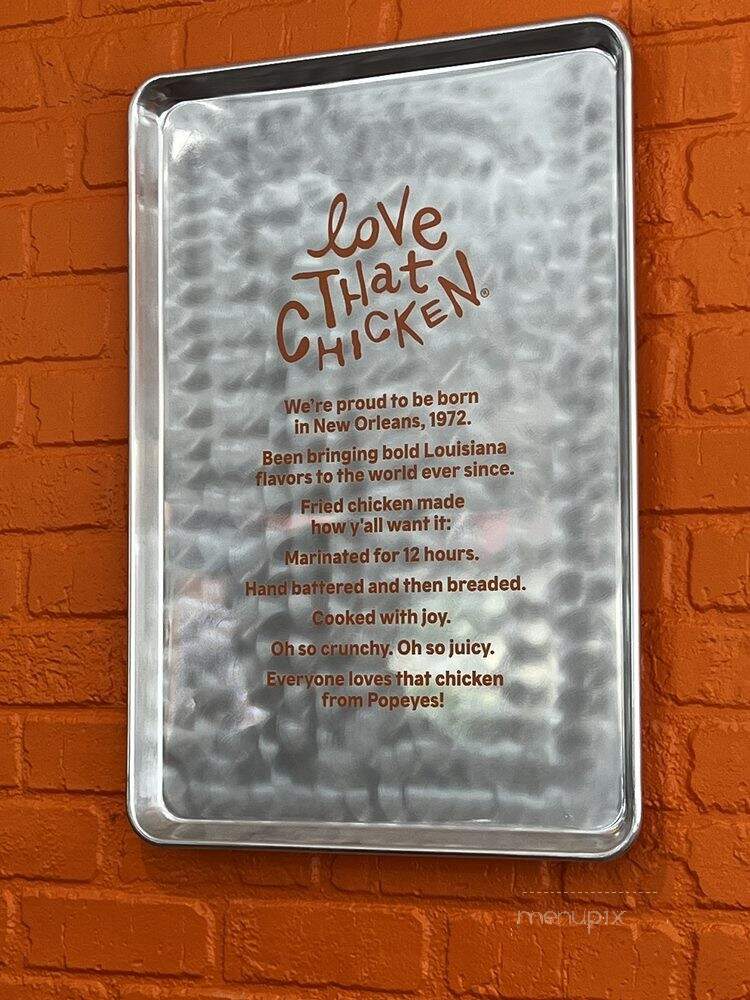 love
THat
CHICKEN®
We're proud to be born
in New Orleans, 1972.
Been bringing bold Louisiana
flavors to the world ever since.
Fried chicken made
how y'all want it:
Marinated for 12 hours.
Hand battered and then breaded.
Cooked with joy.
Oh so crunchy. Oh so juicy.
Everyone loves that chicken
from Popeyes!
menupix